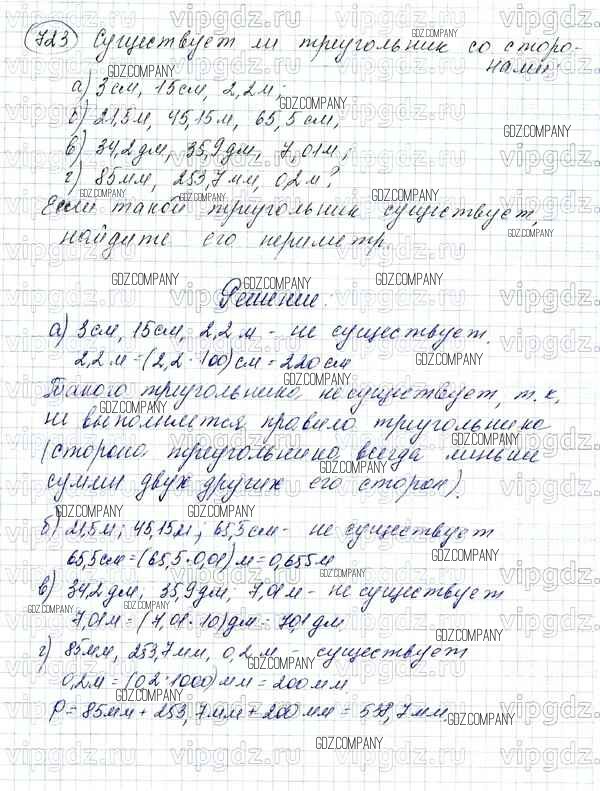 723 Существует ли треугольник со сторо-
нами:
а) 3 см, 15 см, 2,2 м;
б) 21,5 м, 45,15 м, 65,5 см;
в) 34,2 дм, 35,9 дм, 7,01 м;
г) 85 мм, 253,7 мм, 0,2 м?
Если такой треугольник существует,
найдите его периметр.
Решение:
а) 3 см, 15 см, 2,2 м - не существует.
2,2 м = (2,2 · 100) см = 220 см
Такого треугольника не существует, т.к.
не выполняется правило треугольника
(сторона треугольника всегда меньше
суммы двух других его сторон).
б) 21,5 м; 45,15 м; 65,5 см - не существует
65,5 см = (65,5 · 0,01) м = 0,655 м
в) 34,2 дм, 35,9 дм, 7,01 м - не существует
7,01 м = (7,01 · 10) дм = 70,1 дм
г) 85 мм, 253,7 мм, 0,2 м - существует
0,2 м = (0,2 · 1000) мм = 200 мм
P = 85 мм + 253,7 мм + 200 мм = 538,7 мм.
vipgdz.ru
GDZ.COMPANY